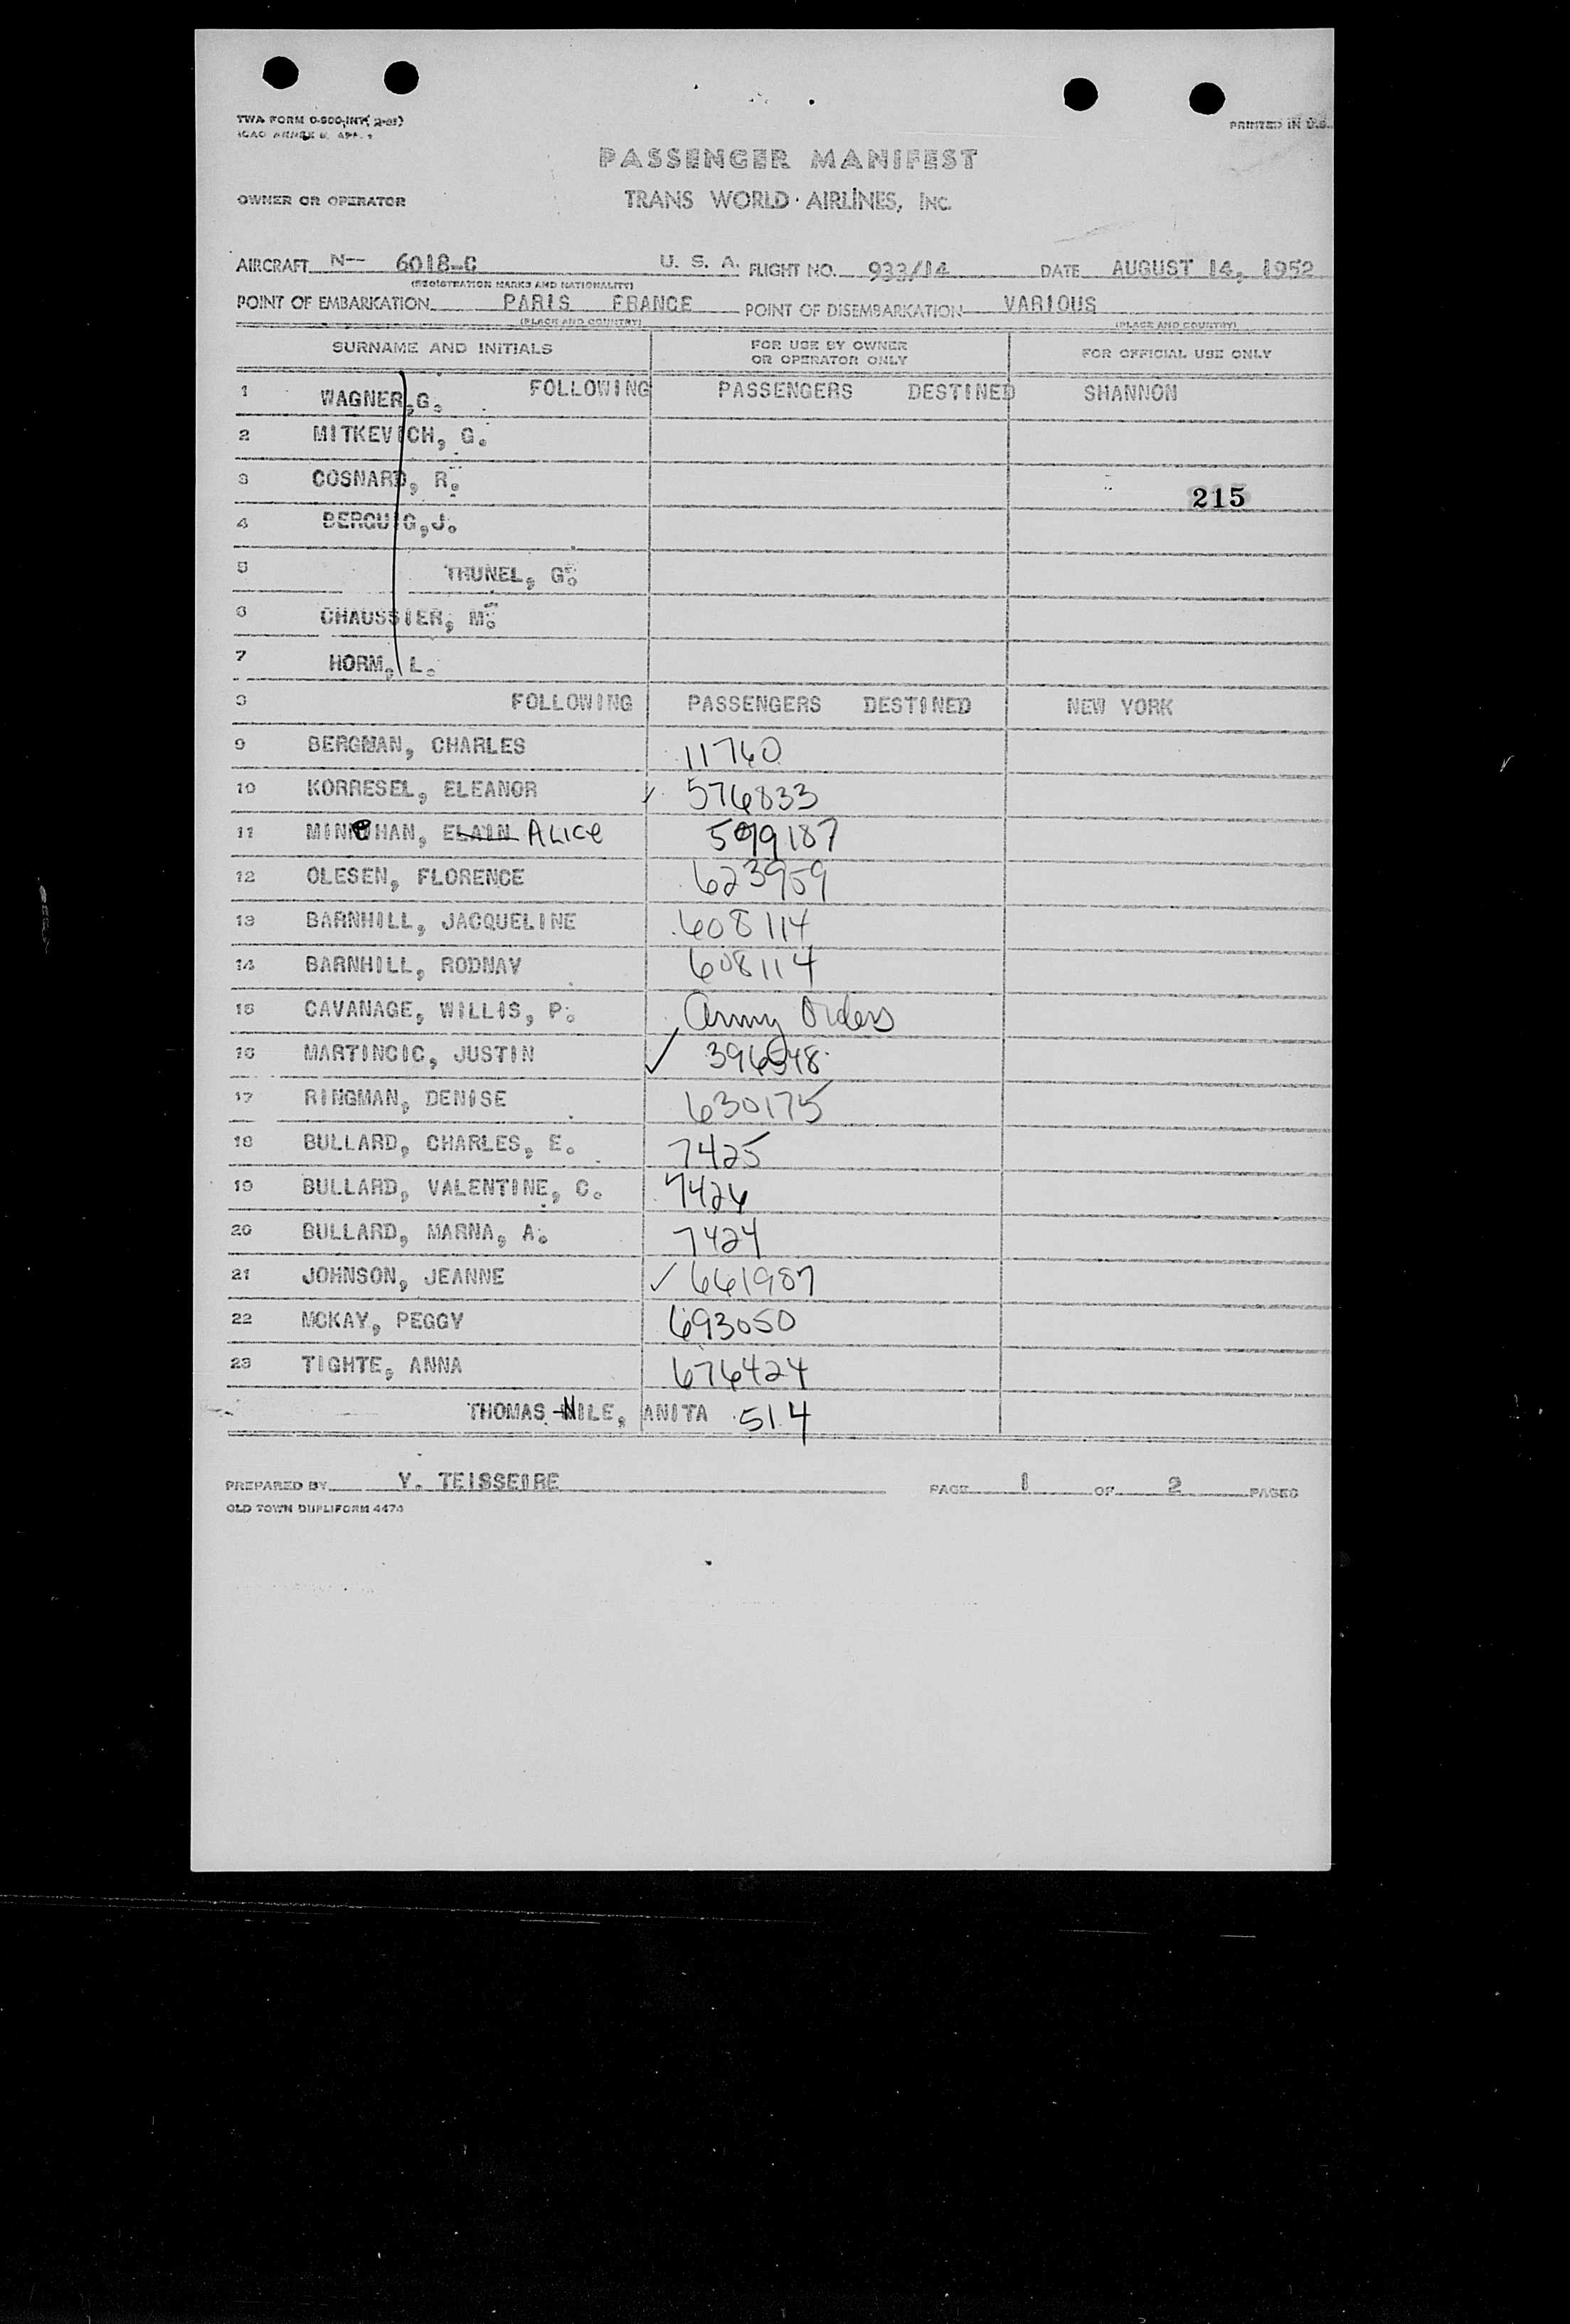 TWA FORM 0-500-INT(2-51)
ICAO ANNEX 9, APP. 1
PRINTED IN U.S.
PASSENGER MANIFEST
OWNER OR OPERATOR TRANS WORLD AIRLINES, INC.
AIRCRAFT N-- 6018-C U. S. A. FLIGHT NO. 933/14 DATE AUGUST 14, 1952
(REGISTRATION MARKS AND NATIONALITY)
POINT OF EMBARKATION PARIS FRANCE POINT OF DISEMBARKATION VARIOUS
(PLACE AND COUNTRY) (PLACE AND COUNTRY)
SURNAME AND INITIALS FOR USE BY OWNER OR OPERATOR ONLY FOR OFFICIAL USE ONLY
1 WAGNER,G. FOLLOWING PASSENGERS DESTINED SHANNON
2 MITKEVICH, G.
3 COSNARD, R.
215
4 BERGUIG,J.
5 THUNEL, G.
6 CHAUSSIER, M.
7 HORM, L.
8 FOLLOWING PASSENGERS DESTINED NEW YORK
9 BERGMAN, CHARLES 11760
10 KORRESEL, ELEANOR ✓ 576833
11 MINNEHAN, ELAIN ALICE 599187
12 OLESEN, FLORENCE 623959
13 BARNHILL, JACQUELINE 608114
14 BARNHILL, RODNAY 608114
15 CAVANAGE, WILLIS, P. Army Orders
16 MARTINCIC, JUSTIN ✓ 396548
17 RINGMAN, DENISE 630175
18 BULLARD, CHARLES, E. 7425
19 BULLARD, VALENTINE, C. 7426
20 BULLARD, MARNA, A. 7424
21 JOHNSON, JEANNE ✓ 661987
22 MCKAY, PEGGY 693050
23 TIGHTE, ANNA 676424
THOMAS NILE, ANITA 514
PREPARED BY Y. TEISSEIRE PAGE 1 OF 2 PAGES
OLD TOWN DUPLIFORM 4474